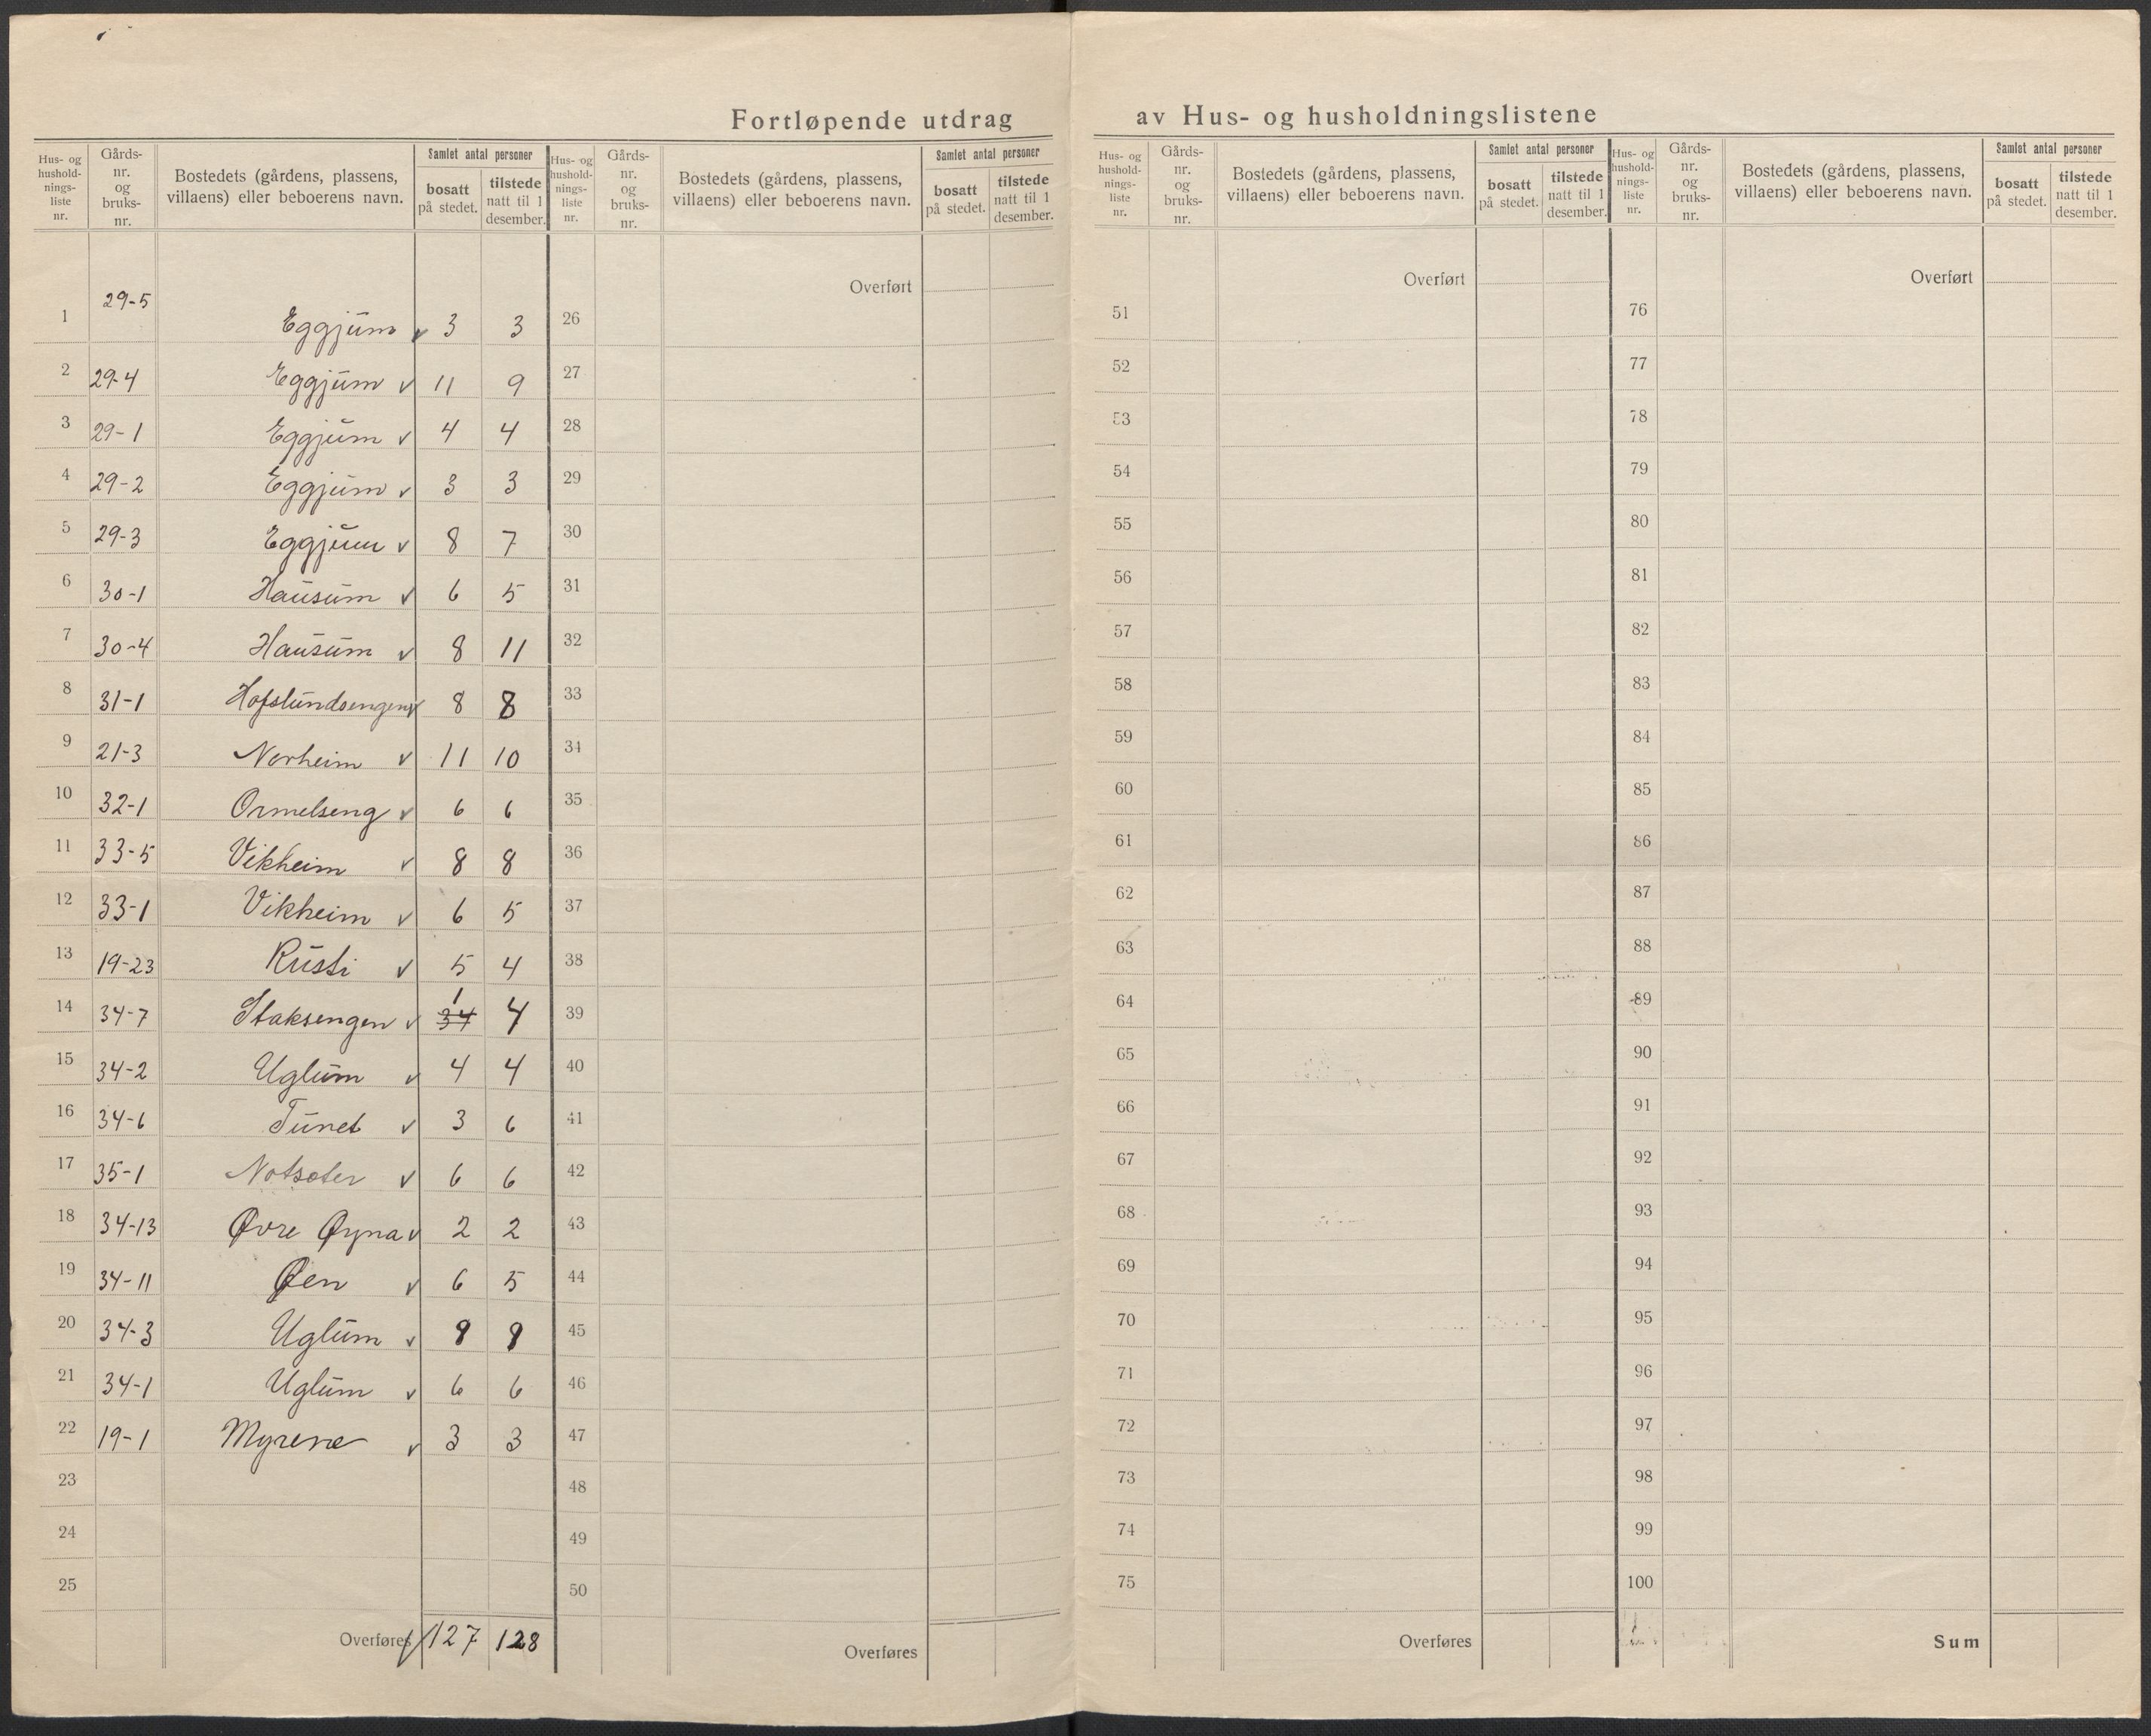 Fortløpende utdrag av Hus- og husholdningslistene
Hus- og hushold-nings-liste nr. Gårds-nr. og bruks-nr. Bostedets (gårdens, plassens, villaens) eller beboerens navn. Samlet antal personer bosatt på stedet. tilstede natt til 1 desember.
1 29-5 Eggjum v 3 3
2 29-4 Eggjum v 11 9
3 29-1 Eggjum v 4 4
4 29-2 Eggjum v 3 3
5 29-3 Eggjum v 8 7
6 30-1 Hausum v 6 5
7 30-4 Hausum v 8 11
8 31-1 Hofslundsengen v 8 8
9 21-3 Norheim v 11 10
10 32-1 Ormelseng v 6 6
11 33-5 Vikheim v 8 8
12 33-1 Vikheim v 6 5
13 19-23 Rusti v 5 4
14 34-7 Staksengen v 34 1 4
15 34-2 Uglum v 4 4
16 34-6 Tunet v 3 6
17 35-1 Notseter v 6 6
18 34-13 Øvre Øyna v 2 2
19 34-11 Øen v 6 5
20 34-3 Uglum v 9 9
21 34-1 Uglum v 6 6
22 19-1 Myrene v 3 3
23
24
25
Overføres 127 128
Hus- og hushold-nings-liste nr. Gårds-nr. og bruks-nr. Bostedets (gårdens, plassens, villaens) eller beboerens navn. Samlet antal personer bosatt på stedet. tilstede natt til 1 desember.
Overført
26
27
28
29
30
31
32
33
34
35
36
37
38
39
40
41
42
43
44
45
46
47
48
49
50
Overføres
Hus- og hushold-nings-liste nr. Gårds-nr. og bruks-nr. Bostedets (gårdens, plassens, villaens) eller beboerens navn. Samlet antal personer bosatt på stedet. tilstede natt til 1 desember.
Overført
51
52
53
54
55
56
57
58
59
60
61
62
63
64
65
66
67
68
69
70
71
72
73
74
75
Overføres
Hus- og hushold-nings-liste nr. Gårds-nr. og bruks-nr. Bostedets (gårdens, plassens, villaens) eller beboerens navn. Samlet antal personer bosatt på stedet. tilstede natt til 1 desember.
Overført
76
77
78
79
80
81
82
83
84
85
86
87
88
89
90
91
92
93
94
95
96
97
98
99
100
Sum